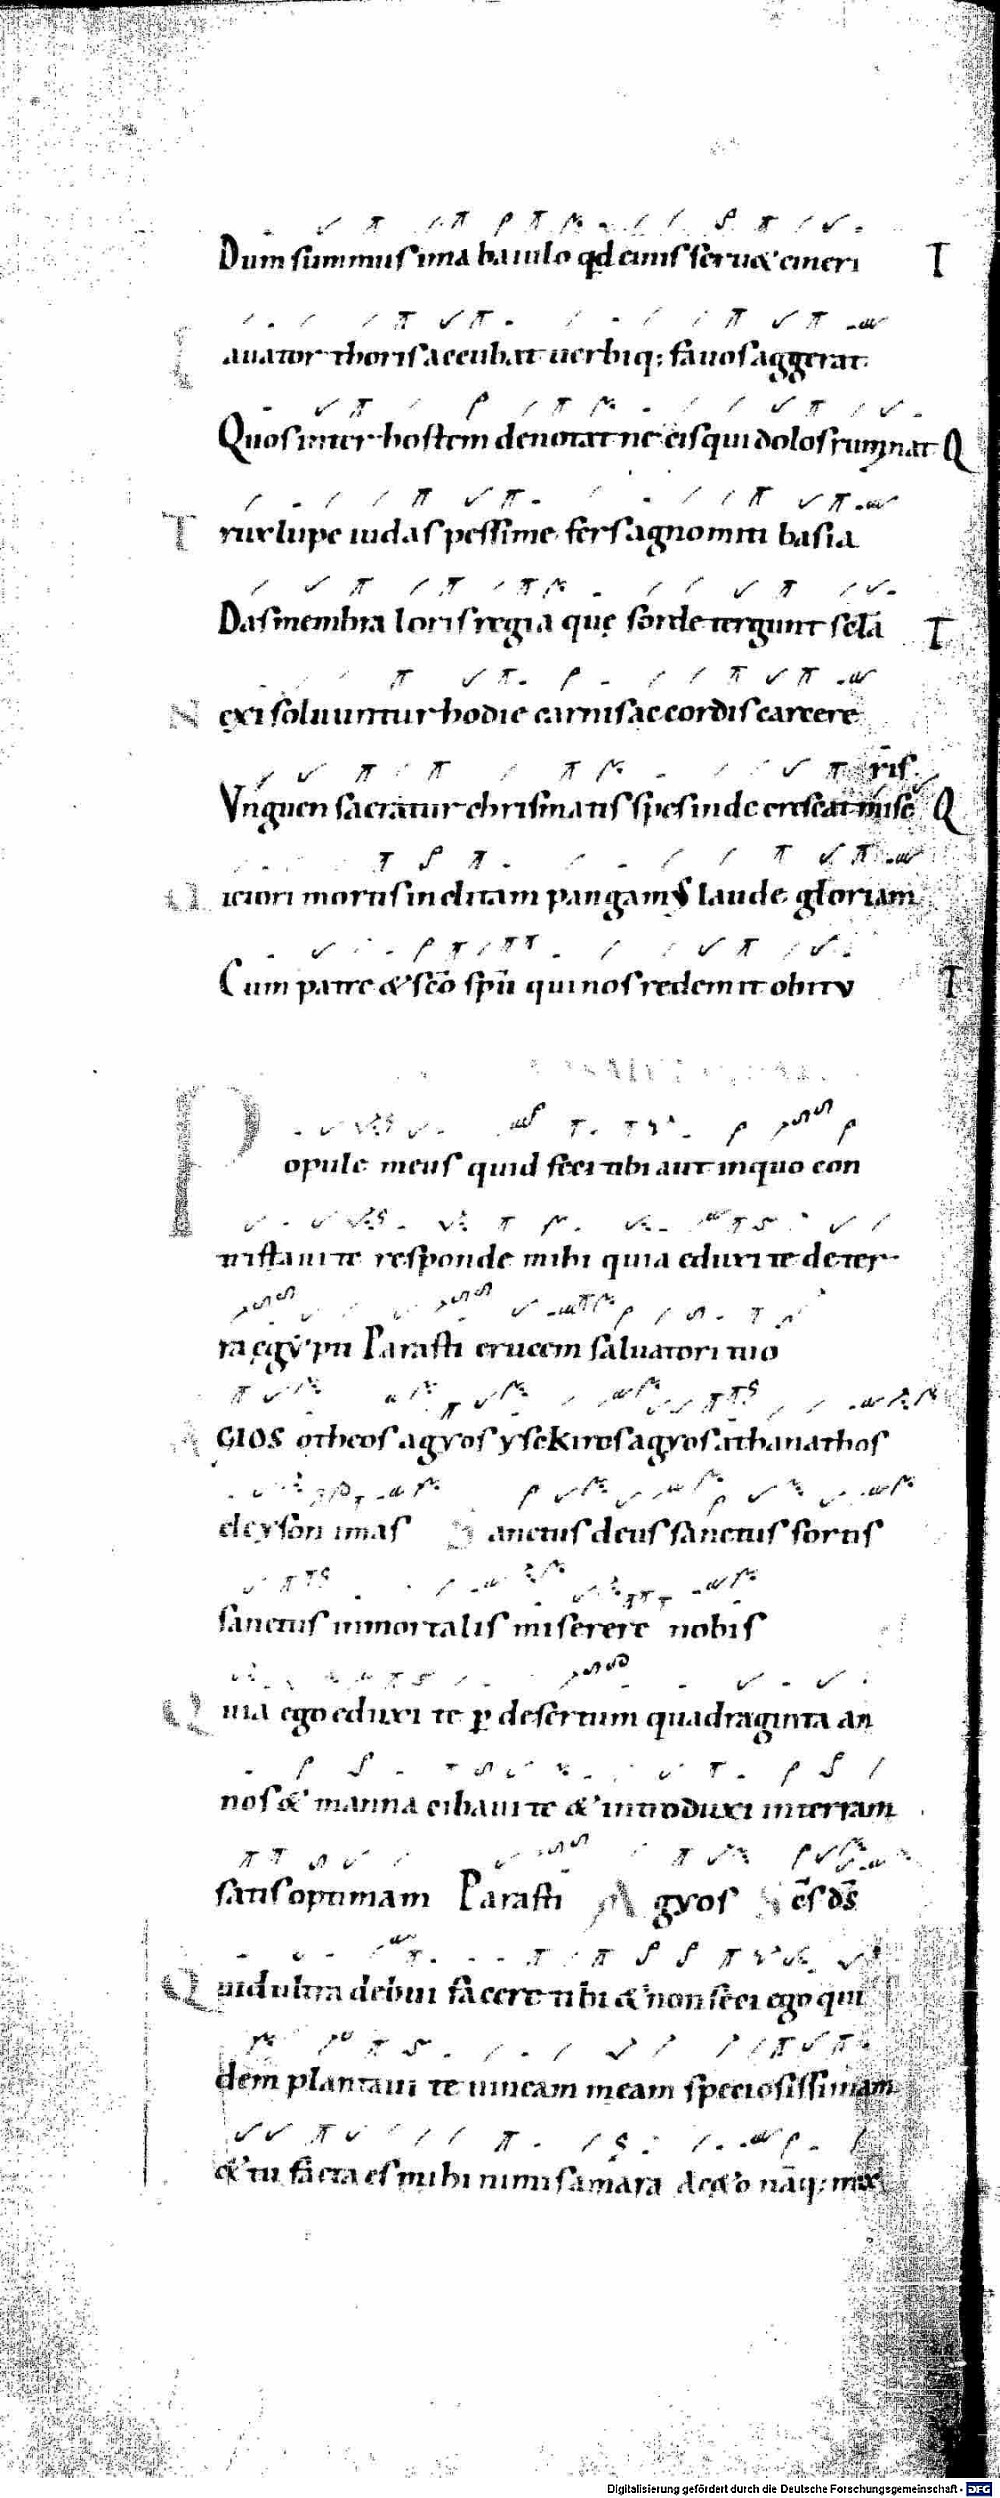 Dum summus ima baiulo qd eius seru& cineri T
Lauator thoris accubat uerbiq; fauos aggerat
Quos inter hostem denotat necis qui dolos ruminat Q
Trux lupe iudas pessime fers agno miti basia
Das membra loris regia quę sorde tergunt scla T
Nexi soluuntur hodie carnis ac cordis carcere
Vnguen sacratur chrismatis spes inde crescat mise ris. Q
Victori mortis inclitam pangamus laude gloriam
Cum patre & sco spu qui nos redemit obitu T
Popule meus quid feci tibi aut in quo con
tristaui te responde mihi quia eduxi te de ter
ra egypti Parasti crucem saluatori tuo
AGIOS otheos agyos yschiros agyos athanathos
eleyson imas Sanctus deus sanctus fortis
sanctus inmortalis miserere nobis
Quia ego eduxi te p desertum quadraginta an
nos & manna cibaui te & introduxi in terram
satis optimam Parasti Agyos Scs ds
Quid ultra debui facere tibi & non feci ego qui
dem plantaui te uineam meam speciosissimam
& tu facta es mihi nimis amara Ac&o naq; mix
Digitalisierung gefördert durch die Deutsche Forschungsgemeinschaft - DFG